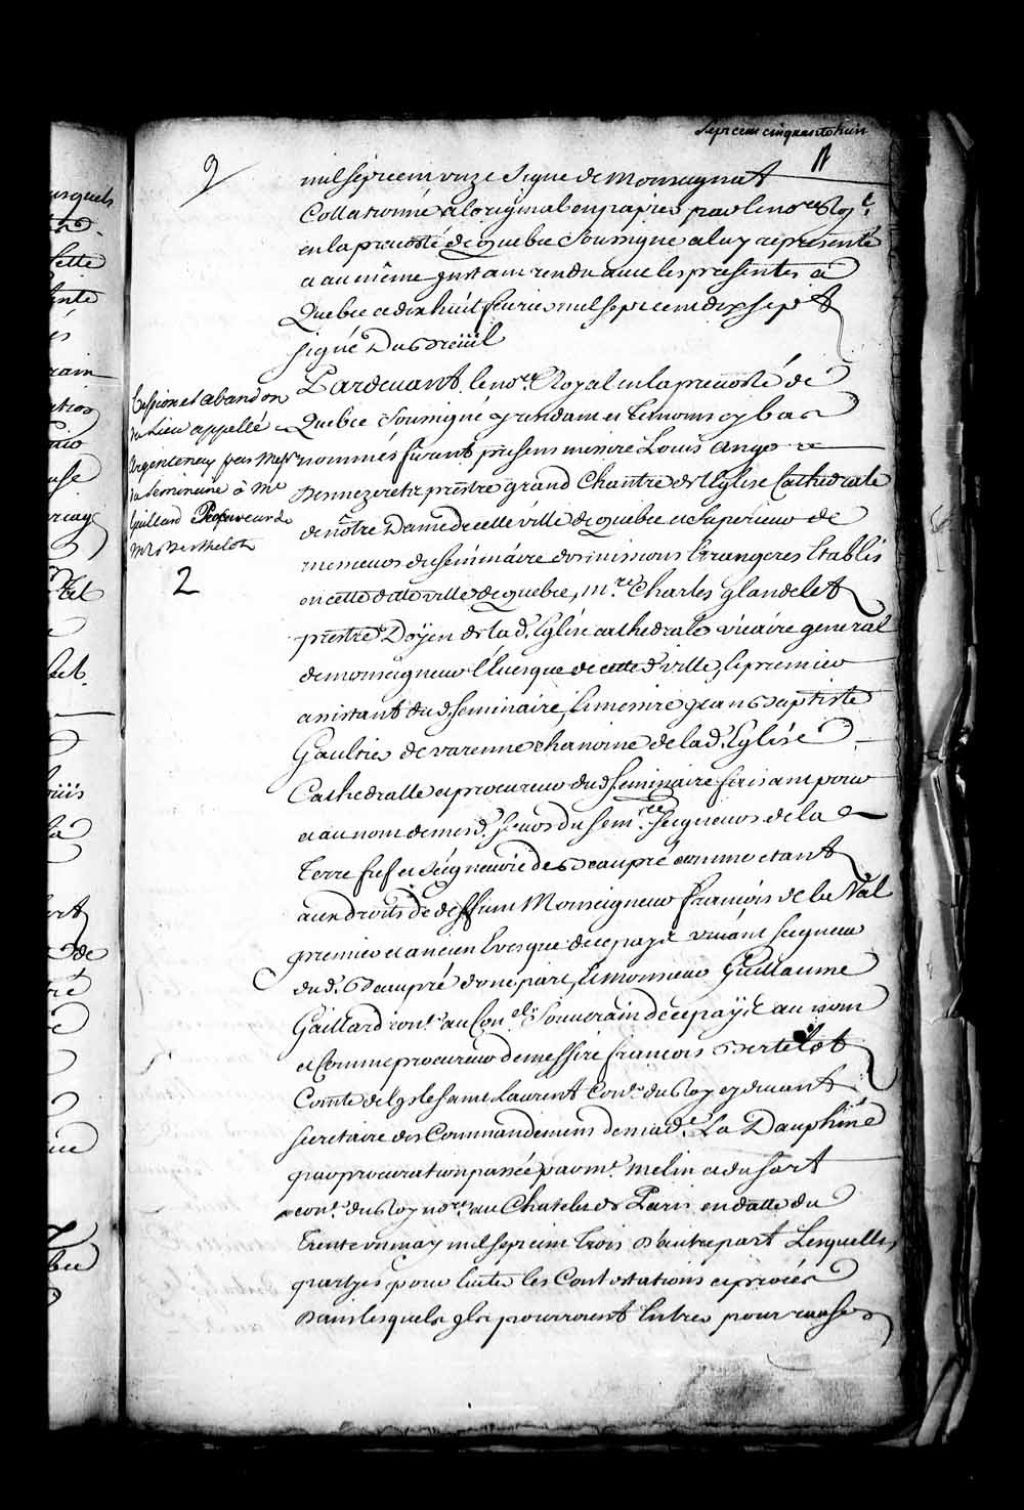 Sept cent cinquante huit
9
11
mil sept cent unze Signé de Monseignat
Collationné a loriginal en papier par le nore. Royl.
en la prevosté de quebec Soussigné a luy representé
et au même instant rendu avec les presentes a
Quebec ce dix huit fevrier mil sept cent dix sept
signé Dubreüil
Pardevant le nore. Royal en la prevosté de
Quebec Soussigné residant et temoins cy bas
nommés furent presens messire Louis Ange de
prestre grand Chantre de l'Eglise Cathedrale
de nôtre Dame de cette ville de quebec et Superieur de
messieurs du Séminaire des missions Etrangeres Etablis
en cette dite ville de quebec, Mre. Charles glandelet
prestre Doyen de lad. Eglise cathedrale vicaire general
de monseigneur l'Evesque de cette d. ville, le premier
assistant du d. Seminaire, et messire Jean Baptiste
Gaultier de varenne chanoine de lad. Eglise
Cathedralle et procureur dud. Seminaire faisant pour
et au nom de mesd. srs. du semre. Seigneurs de la
Terre fief et Seigneurie de Beaupré comme etant
aux droits de deffunt Monseigneur françois de la Val
premier et ancien Evesque de ce païs vivant seigneur
dud. Beaupré d'une part, et monsieur Guillaume
Gaillard cons. au Conel. Souverain de ce païs au nom
et Comme procureur de messire françois Bertelot
Comte de l'Isle saint Laurent Cons. du Roy cy devant
secretaire des Commandemens de made. La Dauphine
par procuration passée par me. melin et dusart
cons. du Roy nores. au Chatelet de Paris en datte du
trente un may mil sept cent trois d'autre part Lesquelles
partyes pour Eviter les Contestations et procés
dans lesquels ils pourroient Entrer pour raison
Cession et abandon
du Lieu appellé
Argentenay par Messrs
du Seminaire à Mr
Gaillard Procureur de
Mr Berthelot
2